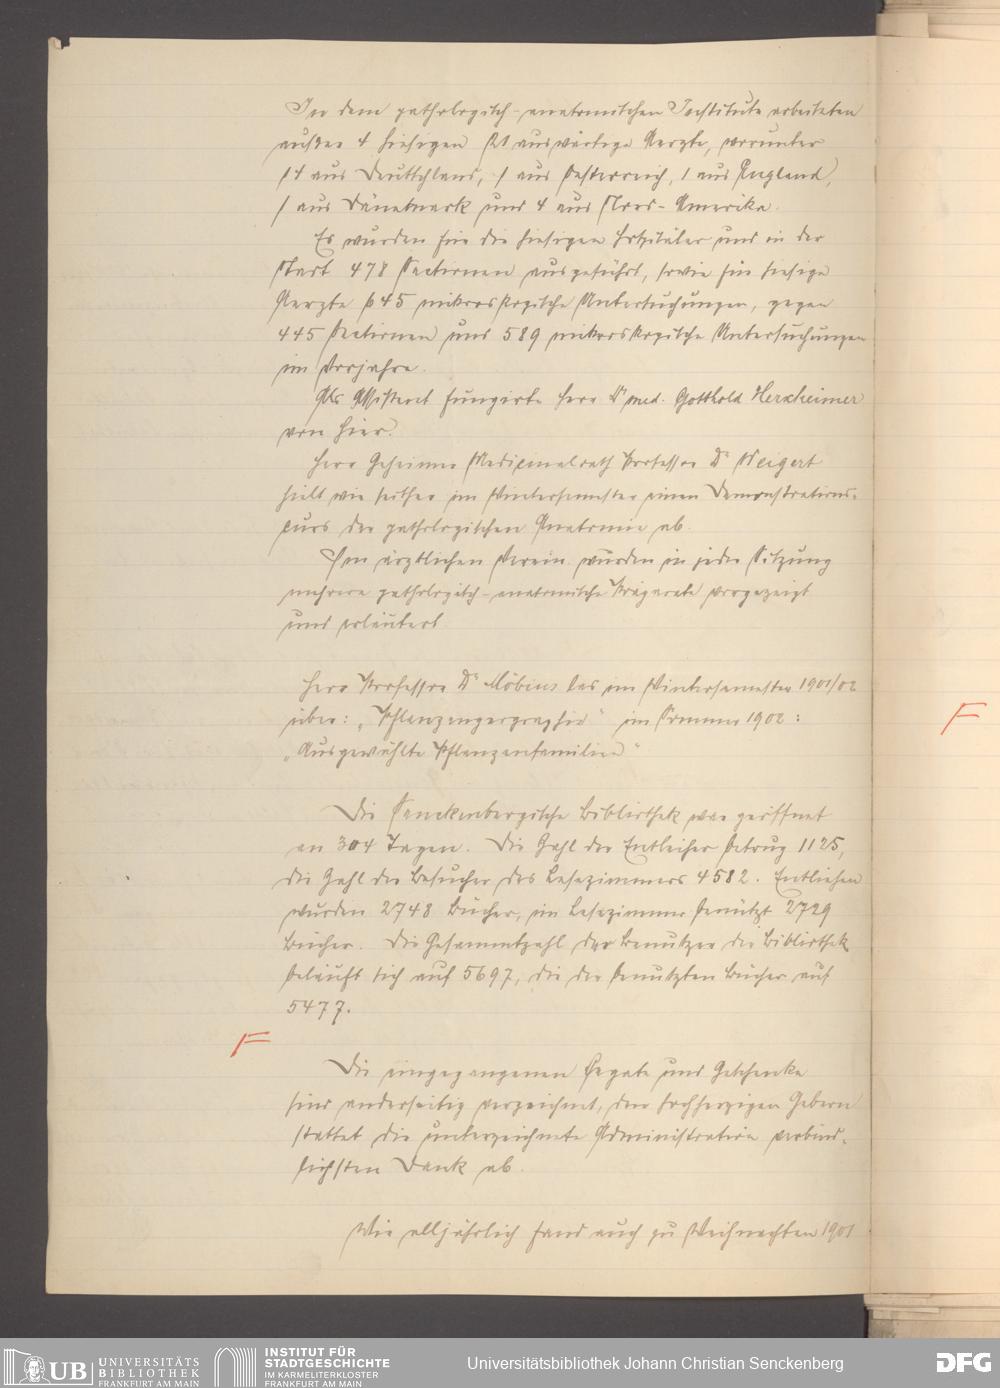 In dem pathologisch-anatomischen Institute arbeiteten
außer 4 hiesigen 21 auswärtige Aerzte, worunter
14 aus Deutschland, 1 aus Oesterreich, 1 aus England,
1 aus Dänemark und 4 aus Nord-Amerika.
Es wurden für die hiesigen Hospitäler und in der
Stadt 478 Sectionen ausgeführt, sowie für hiesige
Aerzte 645 mikroskopische Untersuchungen, gegen
445 Sectionen und 589 mikroskopische Untersuchungen
im Vorjahre.
Als Assistent fungirte Herr Dr med. Gotthold Herxheimer
von hier.
Herr Geheimer Medicinalrath Professor Dr Weigert
hielt wie seither im Wintersemester einen Demonstrations-
curs der pathologischen Anatomie ab.
Im ärztlichen Verein wurden in jeder Sitzung
mehrere pathologisch-anatomische Präparate vorgezeigt
und erläutert
Herr Professor Dr Möbius las im Wintersemester 1901/02
über: „Pflanzengeographie" im Sommer 1902:
„Ausgewählte Pflanzenfamilien"
F
Die Senckenbergische Bibliothek war geöffnet
an 304 Tagen. Die Zahl der Entleiher betrug 1125,
die Zahl der Besucher des Lesezimmers 4582. Entliehen
wurden 2748 Bücher, im Lesezimmer benützt 2729
Bücher. Die Gesammtzahl der Benutzer der Bibliothek
beläuft sich auf 5697, die der benutzten Bücher auf
5477.
F
Die eingegangenen Legate und Geschenke
sind anderseitig verzeichnet, den hochherzigen Gebern
stattet die unterzeichnete Administration verbind-
lichsten Dank ab.
Wie alljährlich fand auch zu Weihnachten 1901
UB UNIVERSITÄTS
BIBLIOTHEK
FRANKFURT AM MAIN
INSTITUT FÜR
STADTGESCHICHTE
IM KARMELITERKLOSTER
FRANKFURT AM MAIN
Universitätsbibliothek Johann Christian Senckenberg
DFG